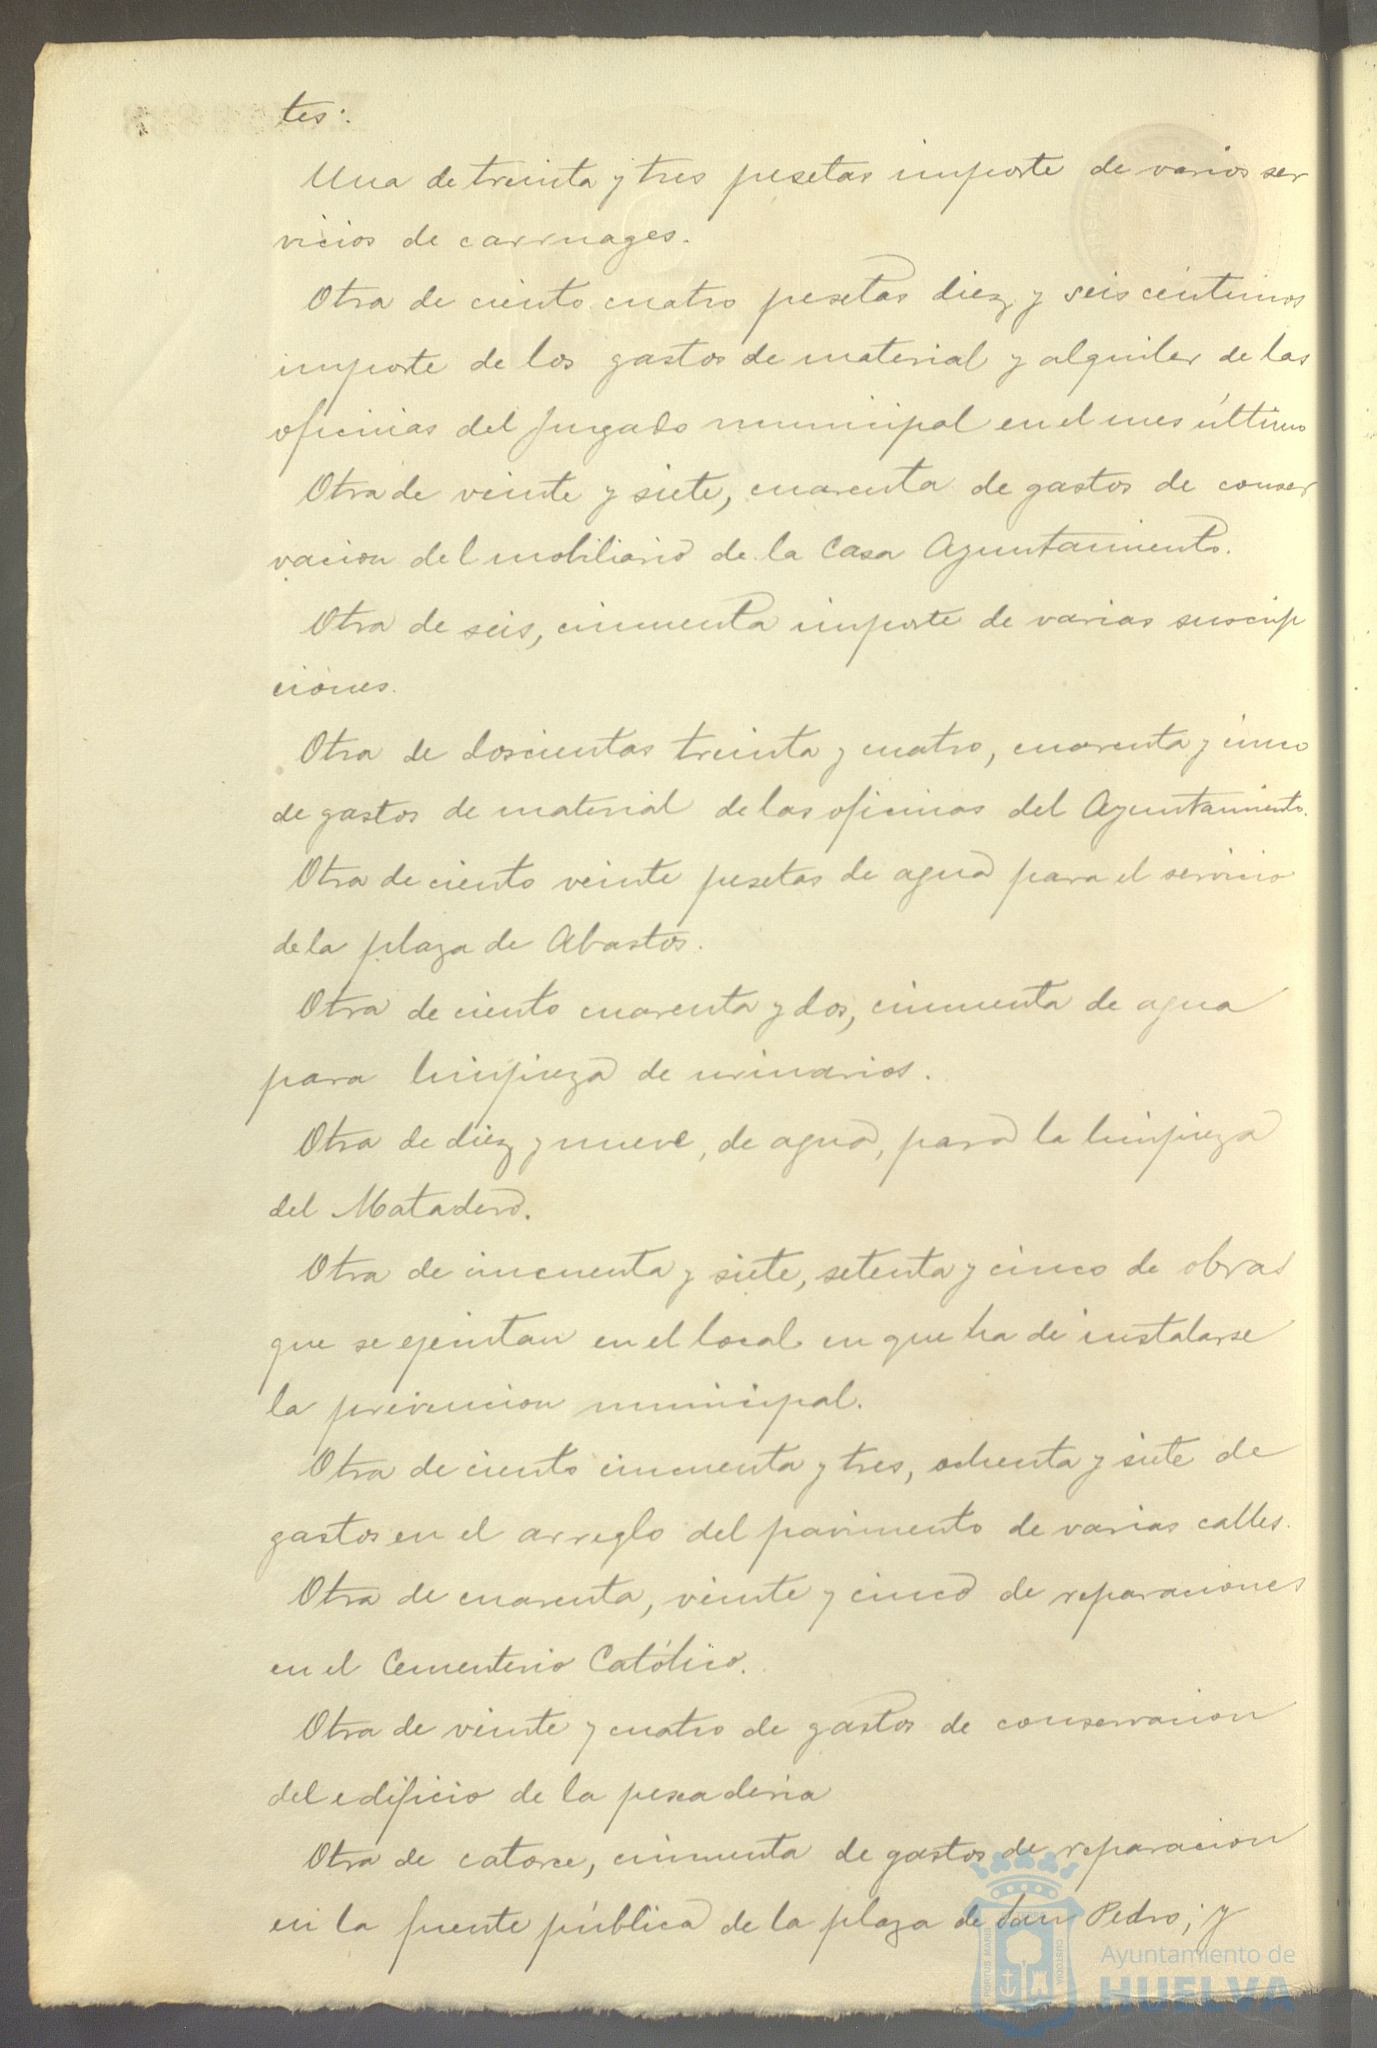 tes:
Una de treinta y tres pesetas importe de varios ser
vicios de carruages.
Otra de ciento cuatro pesetas diez y seis céntimos
importe de los gastos de material y alquiler de las
oficinas del Juzgado municipal en el mes último
Otra de veinte y siete, cuarenta de gastos de conser
vacion del mobiliario de la Casa Ayuntamiento.
Otra de seis, cincuenta importe de varias suscrip
ciones.
Otra de doscientas treinta y cuatro, cuarenta y cinco
de gastos de material de las oficinas del Ayuntamiento.
Otra de ciento veinte pesetas de agua para el servicio
de la plaza de Abastos.
Otra de ciento cuarenta y dos, cincuenta de agua
para limpieza de urinarios.
Otra de diez y nueve, de agua, para la limpieza
del Matadero.
Otra de cincuenta y siete, setenta y cinco de obras
que se ejecutan en el local en que ha de instalarse
la prevencion municipal.
Otra de ciento cincuenta y tres, ochenta y siete de
gastos en el arreglo del pavimento de varias calles.
Otra de cuarenta, veinte y cinco de reparaciones
en el Cementerio Católico.
Otra de veinte y cuatro de gastos de conservacion
del edificio de la pescaderia
Otra de catorce, cincuenta de gastos de reparacion
en la fuente pública de la plaza de San Pedro; y
PORTUS MARIS
CUSTODIA
Ayuntamiento de
HUELVA